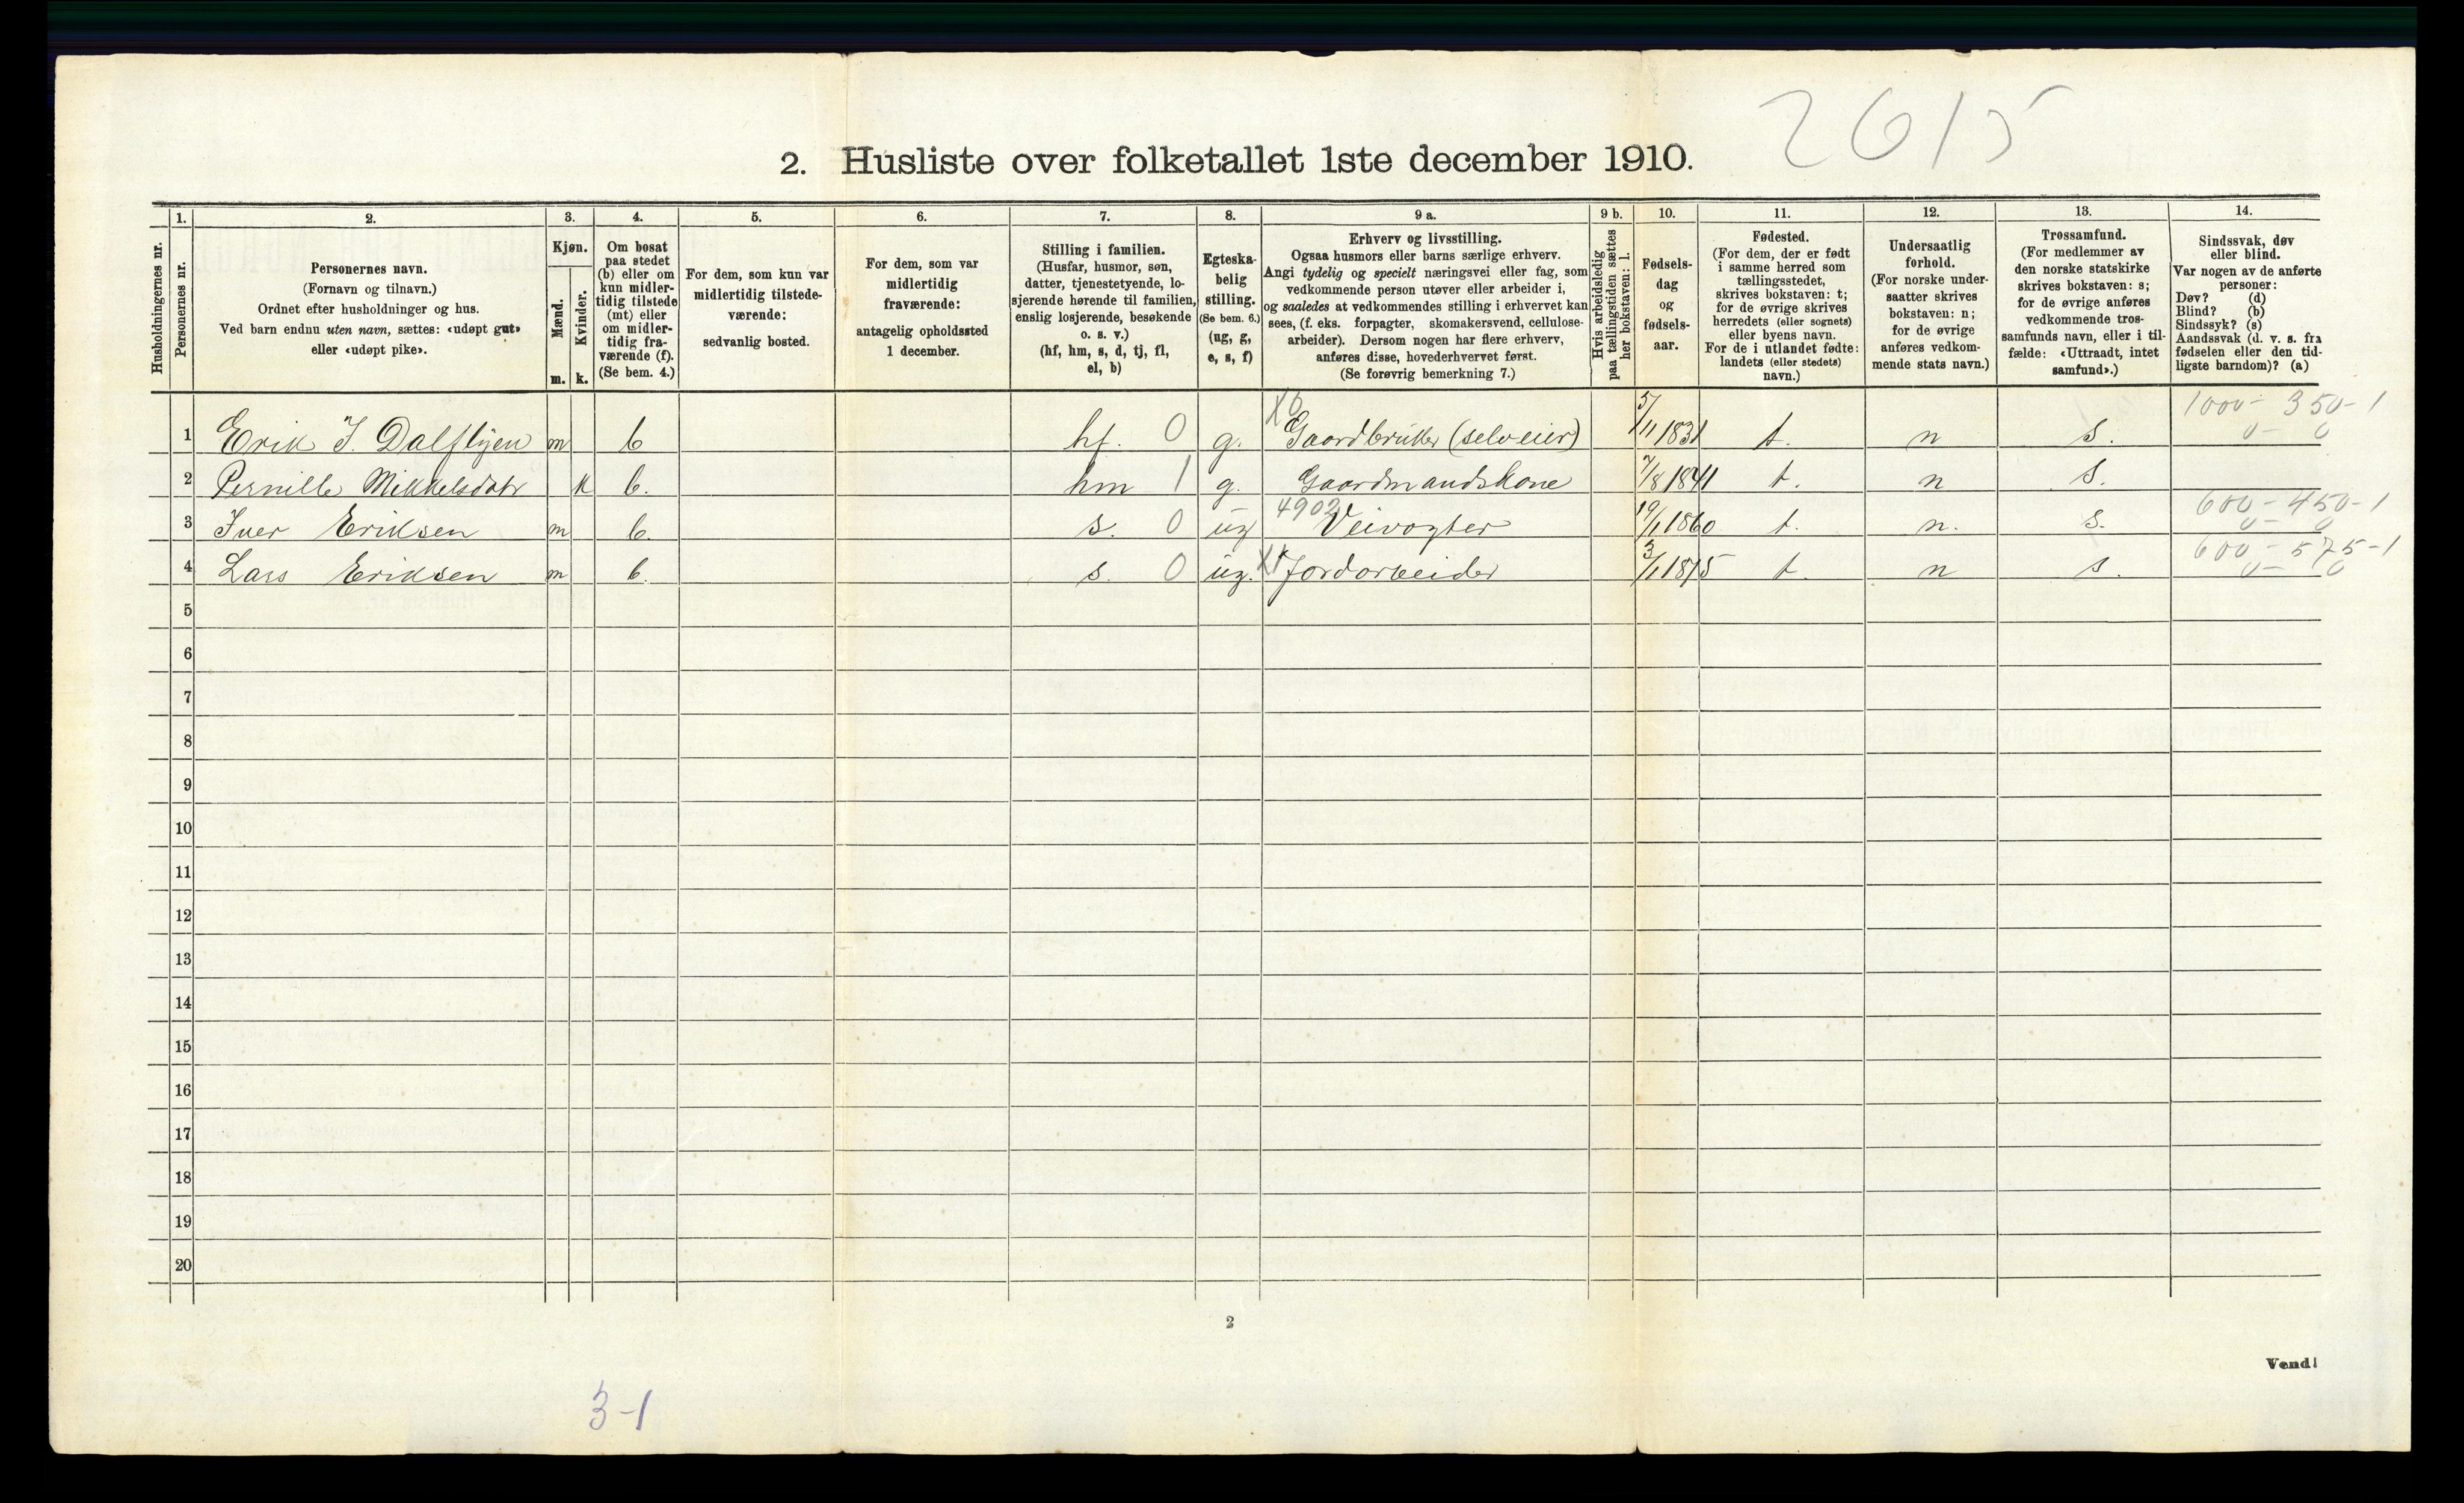 2615
2. Husliste over folketallet 1ste december 1910.
Husholdningernes nr.
1. Personernes nr.
2. Personernes navn.
(Fornavn og tilnavn.)
Ordnet efter husholdninger og hus.
Ved barn endnu uten navn, sættes: «udøpt gut»
eller «udøpt pike».
3. Kjøn.
Mænd. m.
Kvinder. k.
4. Om bosat
paa stedet
(b) eller om
kun midler-
tidig tilstede
(mt) eller
om midler-
tidig fra-
værende (f).
(Se bem. 4.)
5. For dem, som kun var
midlertidig tilstede-
værende:
sedvanlig bosted.
6. For dem, som var
midlertidig
fraværende:
antagelig opholdssted
1 december.
7. Stilling i familien.
(Husfar, husmor, søn,
datter, tjenestetyende, lo-
sjerende hørende til familien,
enslig losjerende, besøkende
o. s. v.)
(hf, hm, s, d, tj, fl,
el, b)
8. Egteska-
belig
stilling.
(Se bem. 6.)
(ug, g,
e, s, f)
9 a. Erhverv og livsstilling.
Ogsaa husmors eller barns særlige erhverv.
Angi tydelig og specielt næringsvei eller fag, som
vedkommende person utøver eller arbeider i,
og saaledes at vedkommendes stilling i erhvervet kan
sees, (f. eks. forpagter, skomakersvend, cellulose-
arbeider). Dersom nogen har flere erhverv,
anføres disse, hovederhvervet først.
(Se forøvrig bemerkning 7.)
9 b. Hvis arbeidsledig
paa tællingstiden sættes
her bokstaven: l.
10. Fødsels-
dag
og
fødsels-
aar.
11. Fødested.
(For dem, der er født
i samme herred som
tællingsstedet,
skrives bokstaven: t;
for de øvrige skrives
herredets (eller sognets)
eller byens navn.
For de i utlandet fødte:
landets (eller stedets)
navn.)
12. Undersaatlig
forhold.
(For norske under-
saatter skrives
bokstaven: n;
for de øvrige
anføres vedkom-
mende stats navn.)
13. Trossamfund.
(For medlemmer av
den norske statskirke
skrives bokstaven: s;
for de øvrige anføres
vedkommende tros-
samfunds navn, eller i til-
fælde: «Uttraadt, intet
samfund».)
14. Sindssvak, døv
eller blind.
Var nogen av de anførte
personer:
Døv? (d)
Blind? (b)
Sindssyk? (s)
Aandssvak (d. v. s. fra
fødselen eller den tid-
ligste barndom)? (a)
X6 1000- 350-1
1 Erik I. Dalflyen m b hf. 0 g. Gaardbruker (selveier) 5/11 1831 t. n s. 0- 0
2 Pernille Mikkelsdatr k b. hm 1 g. Gaardmandskone 7/8 1841 t. n s.
4902 600-450-1
3 Iver Eriksen m b. s. 0 ug Veivogter 19/1 1860 t. n. s. 0- 0
600-575-1
4 Lars Eriksen m b. s. 0 ug. Jordarbeider 3/1 1875 t. n s. 0- 0
5
6
7
8
9
10
11
12
13
14
15
16
17
18
19
20
2
Vend!
3-1